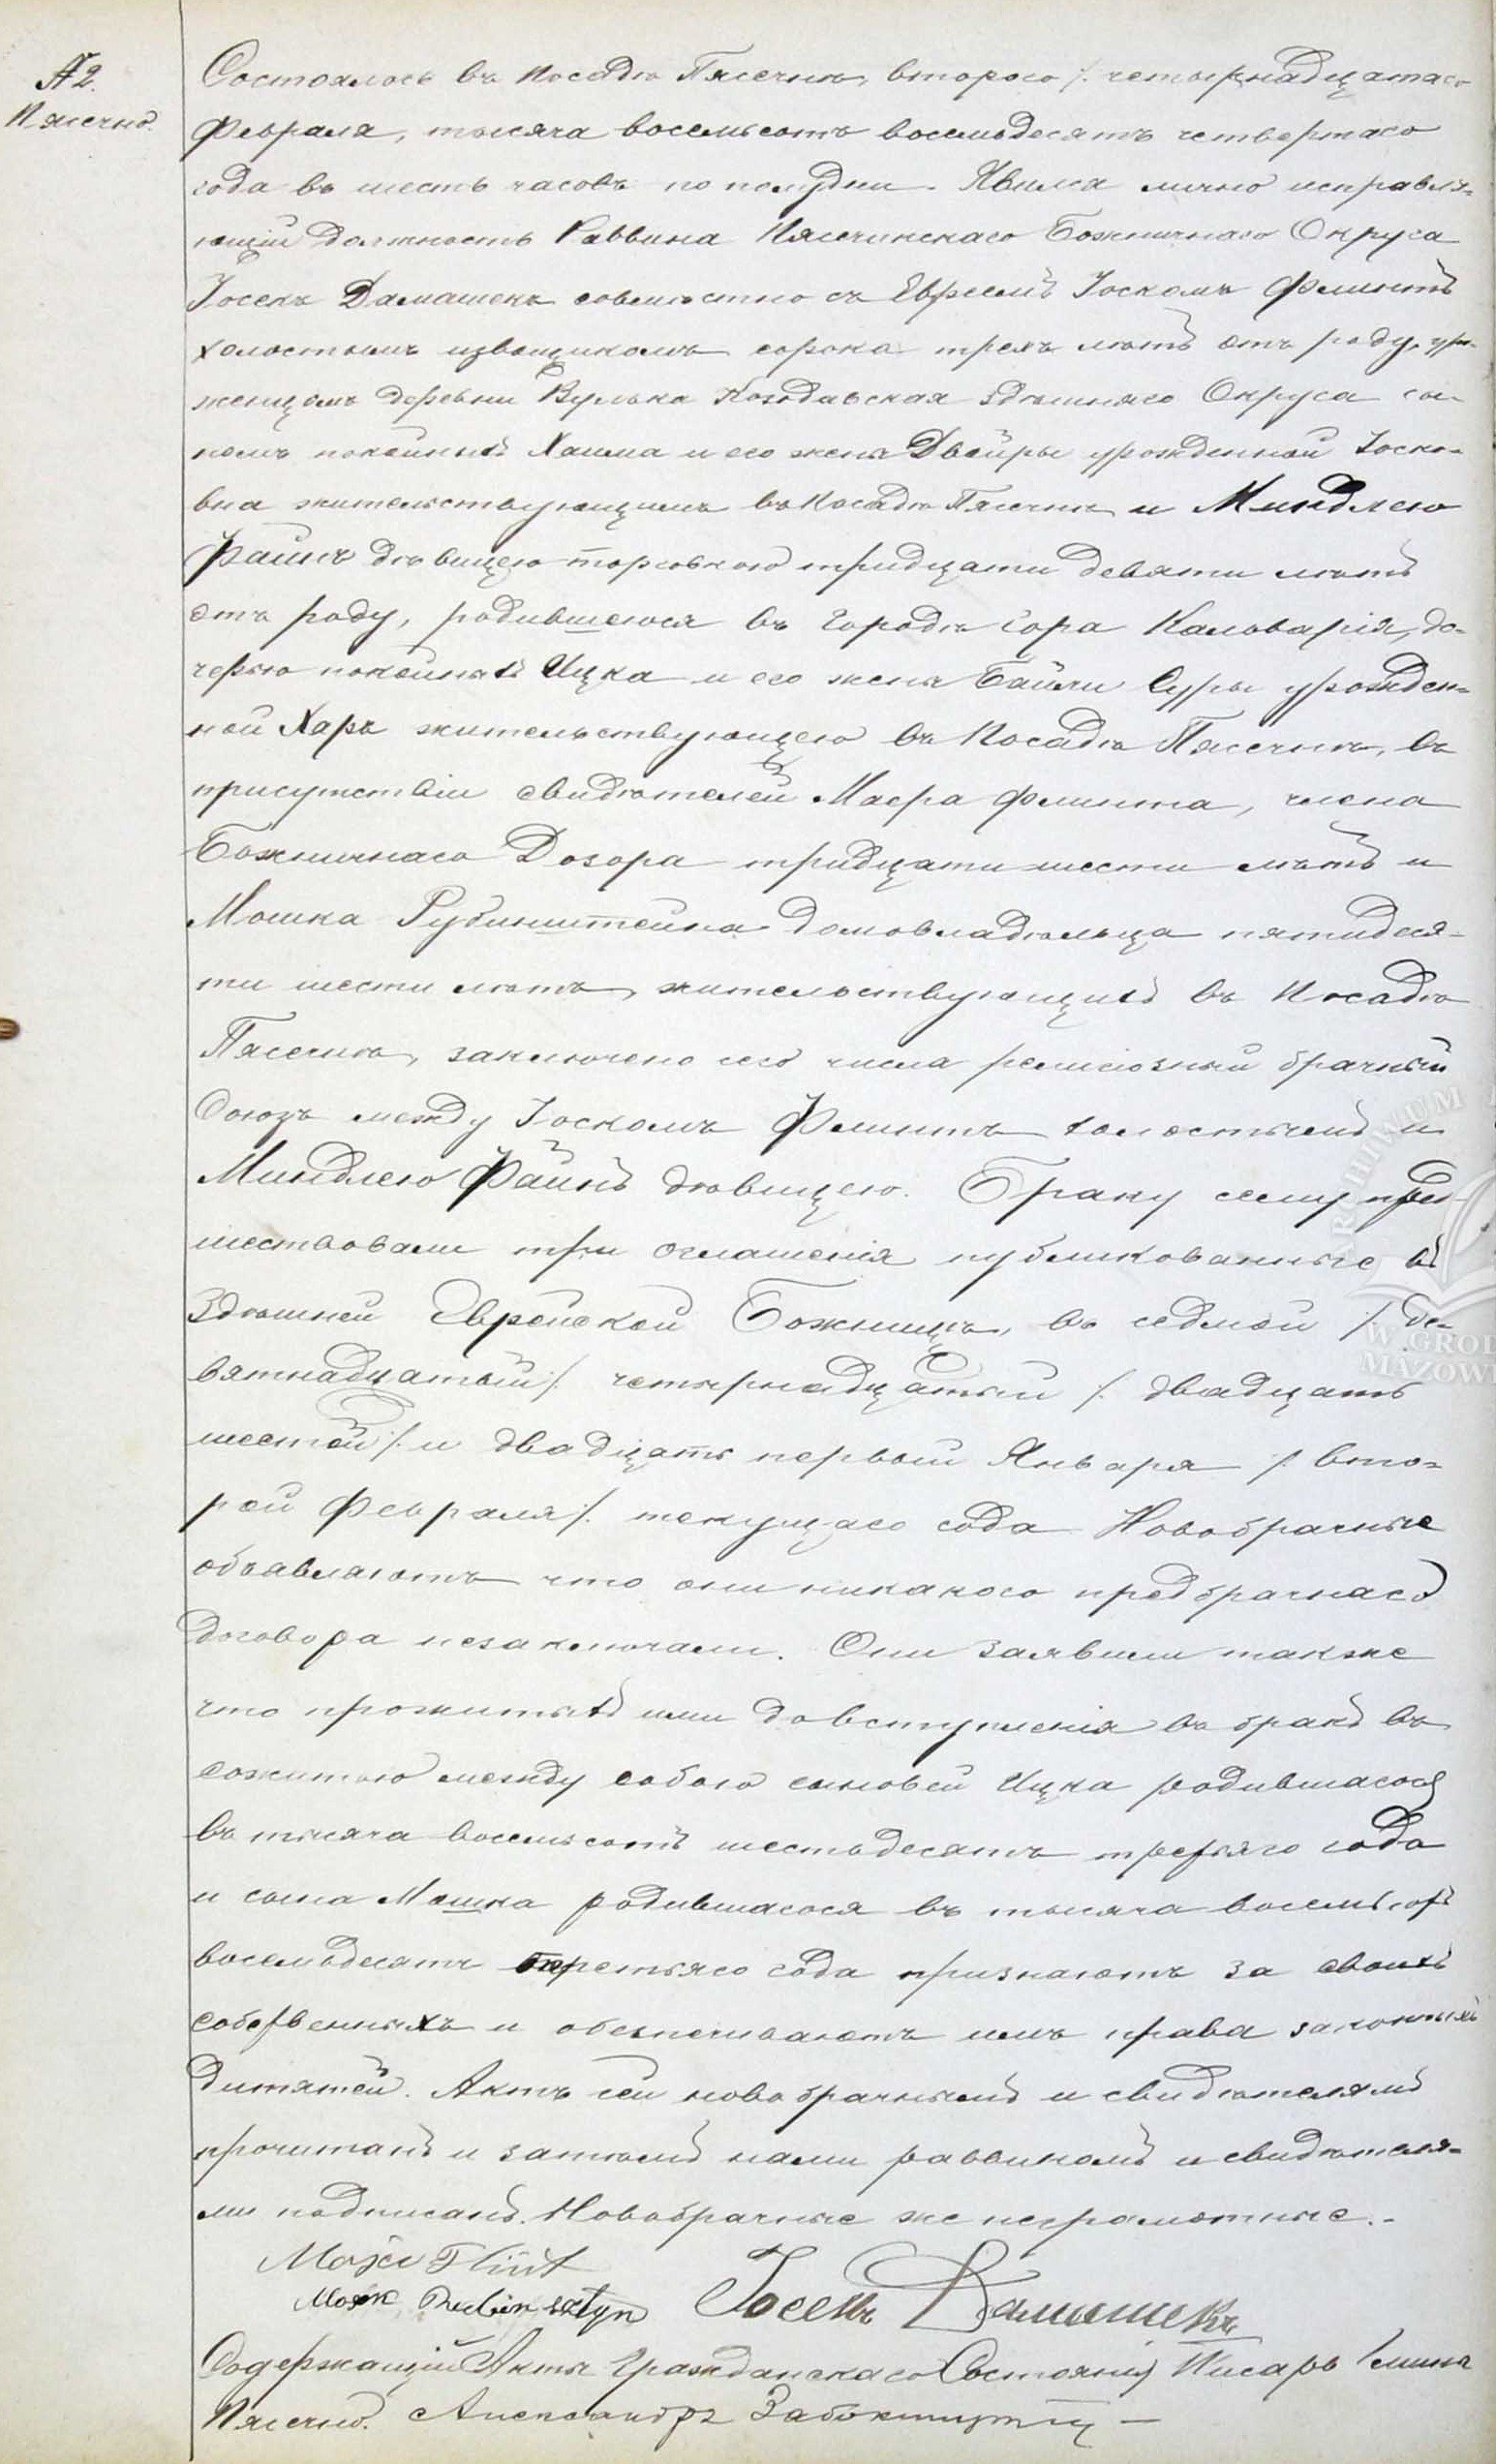 № 2.
Пясечно.
Состоялось въ Посадѣ Пясечнѣ, второго /. четырнадцатаго
Февраля, тысяча восемьсотъ восемьдесятъ четвертаго
года въ шесть часовъ по полудни. Явился лично исправля-
ющій Должность Раввина Пясечинскаго Божничнаго Округа
Іосекъ Дамашекъ совмѣстно съ Евреемъ Іоскомъ Флинтъ
холостымъ извощикомъ сорока трехъ лѣтъ отъ роду, уро-
женцомъ деревни Вулька здѣшняго Округа сы-
номъ покойныхъ Хаима и его жены Двойры урожденной Іоско-
вна жительствующимъ въ Посадѣ Пясечнѣ и Миндлею
Файнъ дѣвицею торговкою тридцати девяти лѣтъ
отъ роду, родившеюся въ городѣ Гора Кальварія, до-
черью покойныхъ Ицка и его жены Байли Суры урожден-
ной Харъ жительствующею въ Посадѣ Пясечнѣ, въ
присутствіи свидѣтелей Маера Флинта, члена
Божничнаго Дозора тридцати шести лѣтъ и
Мошка Рубинштейна домовладѣльца пятидеся-
ти шести лѣтъ, жительствующихъ въ Посадѣ
Пясечнѣ, заключено сего числа религіозный брачный
Союзъ между Іоскомъ Флинтъ холостымъ и
Миндлею Файнъ дѣвицею. Браку сему пред-
шествовали три оглашенія публикованные въ
Здѣшней Еврейской Божницѣ, въ седмой /. де-
вятнадцатый /. четырнадцатый /. двадцать
шестой /. и двадцать первый Января /. вто-
рой Февраля /. текущаго года Новобрачные
объявляютъ что они никакого предбрачнаго
договора незаключали. Они заявили также
что прожитыхъ ими до вступленія въ бракъ въ
сожитью между собою сыновей Ицка родившагося
въ тысяча восемьсотъ шестьдесятъ третьяго года
и сына Мошка родившагося въ тысяча восемьсотъ
восемьдесятъ третьяго года признаютъ за своихъ
собственныхъ и обезпечиваютъ имъ права законныхъ
дитятей. Актъ сей новобрачнымъ и свидѣтелямъ
прочитанъ и затѣмъ нами раввиномъ и свидѣтеля-
ми подписанъ. Новобрачные же неграмотные.-
Flint
Rubinsztyn Іосекъ Дамашекъ
Содержащій Акты Гражданскаго Состоянія Писарь Гмины
Пясечно. Александръ
ARCHIWUM
W GROD
MAZOWI